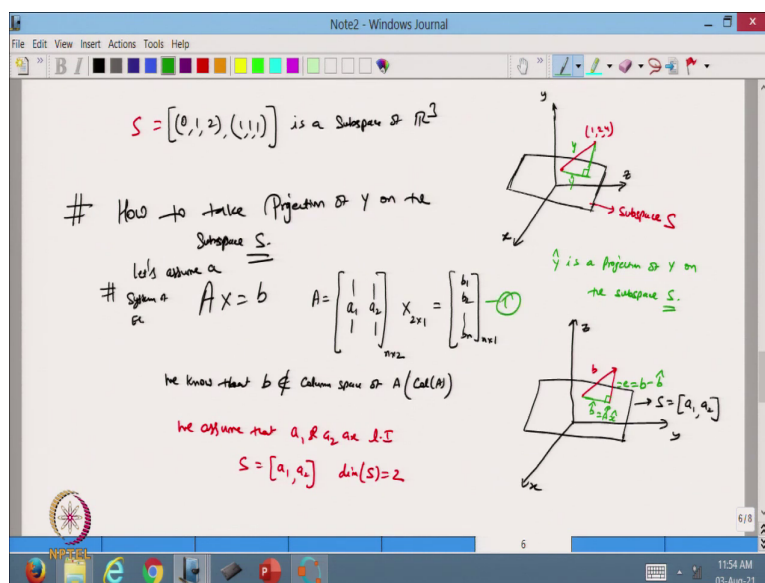 Note2 - Windows Journal
File Edit View Insert Actions Tools Help
B I
S = [(0,1,2), (1,1,1)] is a Subspace of ℝ³
# How to take Projection of Y on the
Subspace S.
let's assume a
# System of
Ax = b
A = [1 1
a₁ a₂
1 1]ₙₓ₂ X₂ₓ₁ = [b₁
b₂
|
bn]ₙₓ₁ — ①
We know that b ∉ Column space of A (Col(A))
We assume that a₁ & a₂ are l.I
S = [a₁, a₂] dim(S)=2
y
(1,2,4)
y
ŷ
z
x
Subspace S
ŷ is a Projection of y on
the subspace S.
z
b
= e = b - b̂
b̂ = Ax̂
S = [a₁, a₂]
y
x
NPTEL
6/8
6
11:54 AM
03-Aug-21